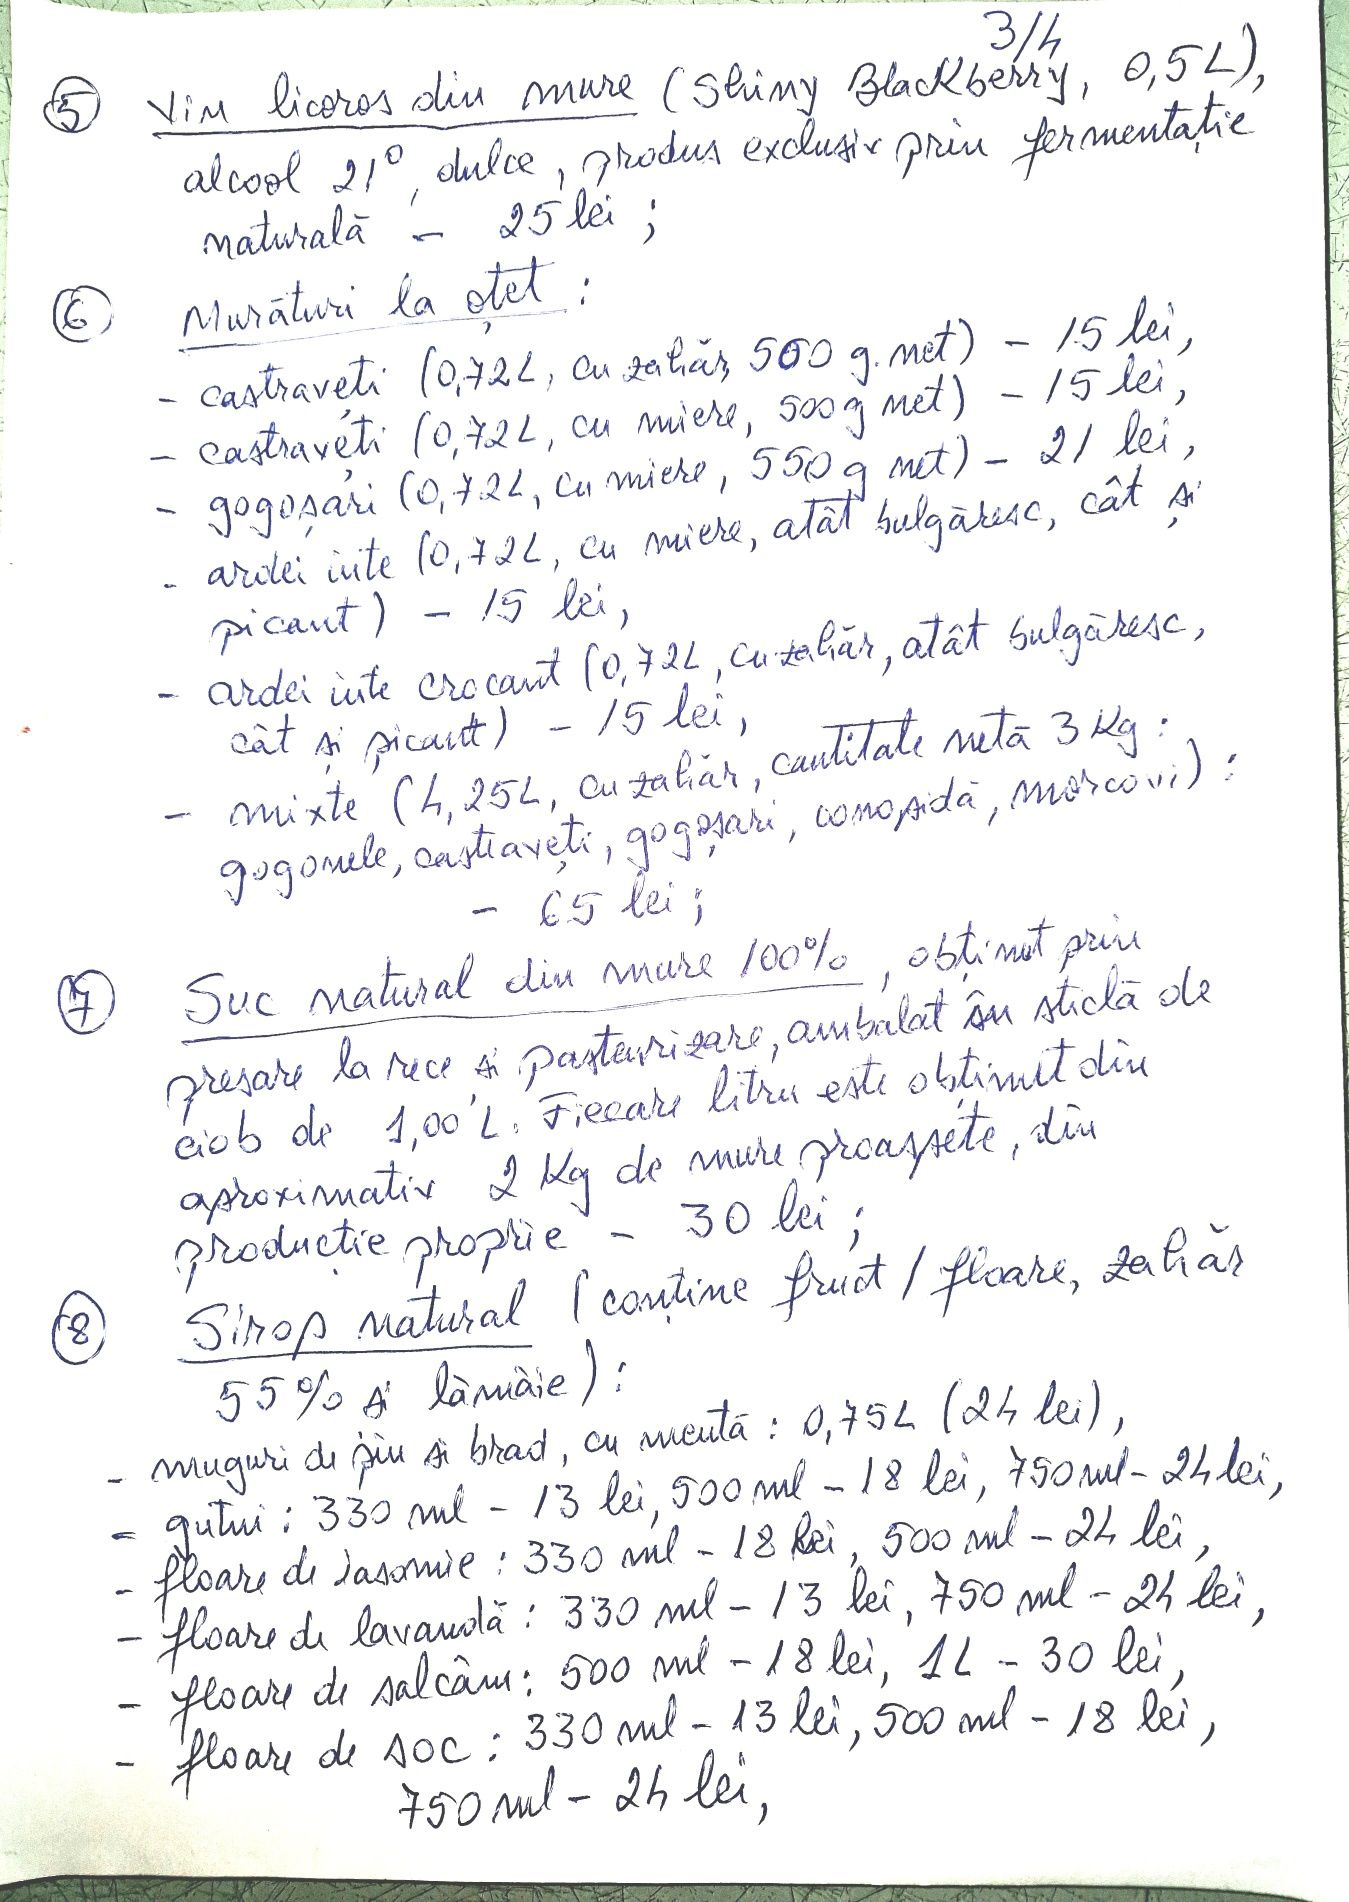 3/4
5 Vin licoros din mure (Shiny BlackBerry, 0,5L),
alcool 21°, dulce, produs exclusiv prin fermentație
naturală - 25 lei;
6 Murături la oțet:
- castraveți (0,72L, cu zahăr, 500 g. net) - 15 lei,
- castraveți (0,72L, cu miere, 500g net) - 15 lei,
- gogoșari (0,72L, cu miere, 550 g net) - 21 lei,
- ardei iute (0,72L, cu miere, atât bulgăresc, cât și
picant) - 15 lei,
- ardei iute crocant (0,72L, cu zahăr, atât bulgăresc,
cât și picant) - 15 lei,
- mixte (4,25L, cu zahăr, cantitate netă 3 Kg:
gogonele, castraveți, gogoșari, conopidă, morcovi):
- 65 lei;
7 Suc natural din mure 100%, obținut prin
presare la rece și pasteurizare, ambalat în sticlă de
ciob de 1,00 L. Fiecare litru este obținut din
aproximativ 2 Kg de mure proaspete, din
producție proprie - 30 lei;
8 Sirop natural (conține fruct / floare, zahăr
55% și lămâie):
- muguri de pin și brad, cu mentă: 0,75L (24 lei),
- gutui: 330 ml - 13 lei, 500 ml - 18 lei, 750 ml - 24 lei,
- floare de iasomie: 330 ml - 18 lei, 500 ml - 24 lei,
- floare de lavandă: 330 ml - 13 lei, 750 ml - 24 lei,
- floare de salcâm: 500 ml - 18 lei, 1L - 30 lei,
- floare de soc: 330 ml - 13 lei, 500 ml - 18 lei,
750 ml - 24 lei,